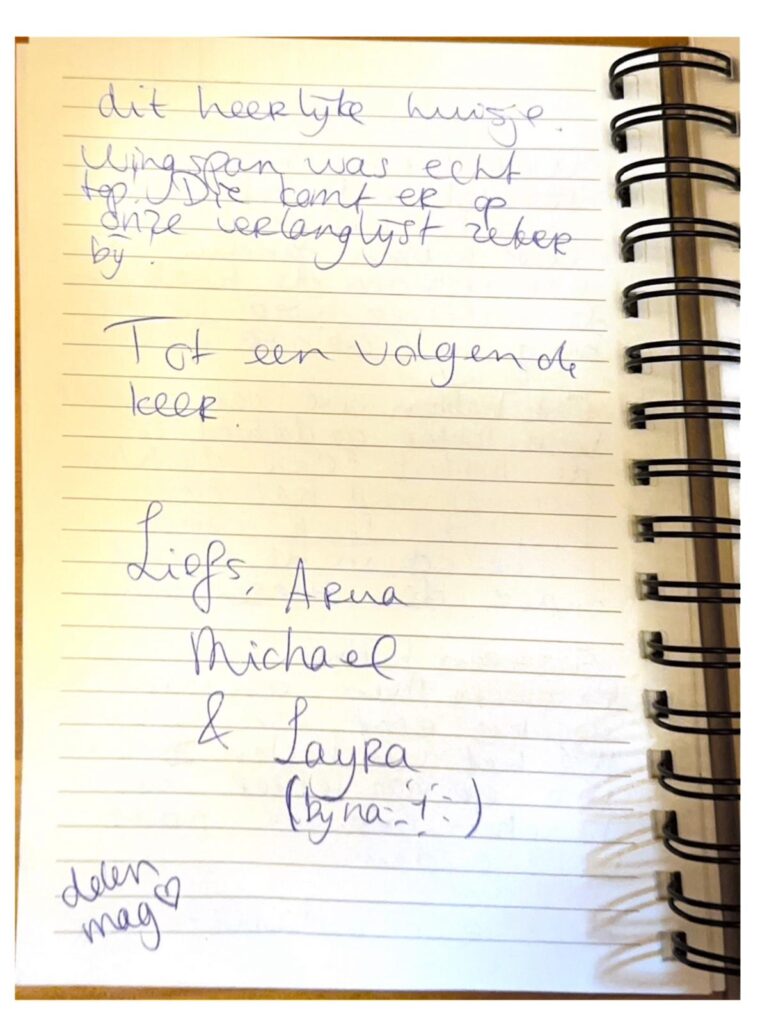 dit heerlijke huisje.
Wingspan was echt
top. Die komt er op
onze verlanglijst zeker
bij!
Tot een volgende
keer.
Liefs, Arua
Michael
& Layra
(bijna 1)
delen
mag ♡